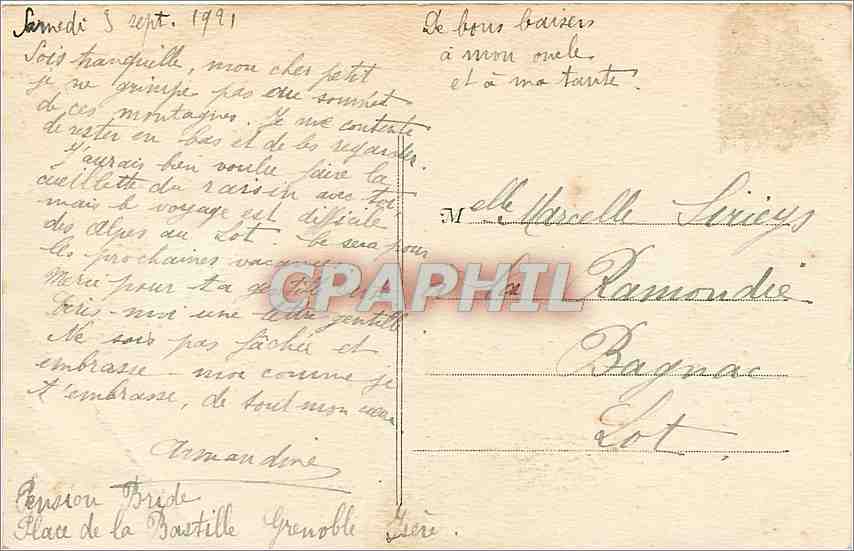 Samedi 3 sept. 1921
Sois tranquille, mon cher petit
je ne grimpe pas au sommet
de ces montagnes. Je me contente
de rester en bas et de les regarder.
J'aurais bien voulu faire la
cueillette du raisin avec toi,
mais le voyage est difficile
des Alpes au Lot. Ce sera pour
les prochaines vacances
Merci pour ta
Ecris-moi une lettre gentille
Ne sois pas fâchée et
embrasse-moi comme je
t'embrasse, de tout mon cœur
Armandine
Pension Bride
Place de la Bastille Grenoble Isère.
De bons baisers
à mon oncle
et à ma tante.
Melle Marcelle Sirieys
La Ramondie
Bagnac
Lot.
CPAPHIL